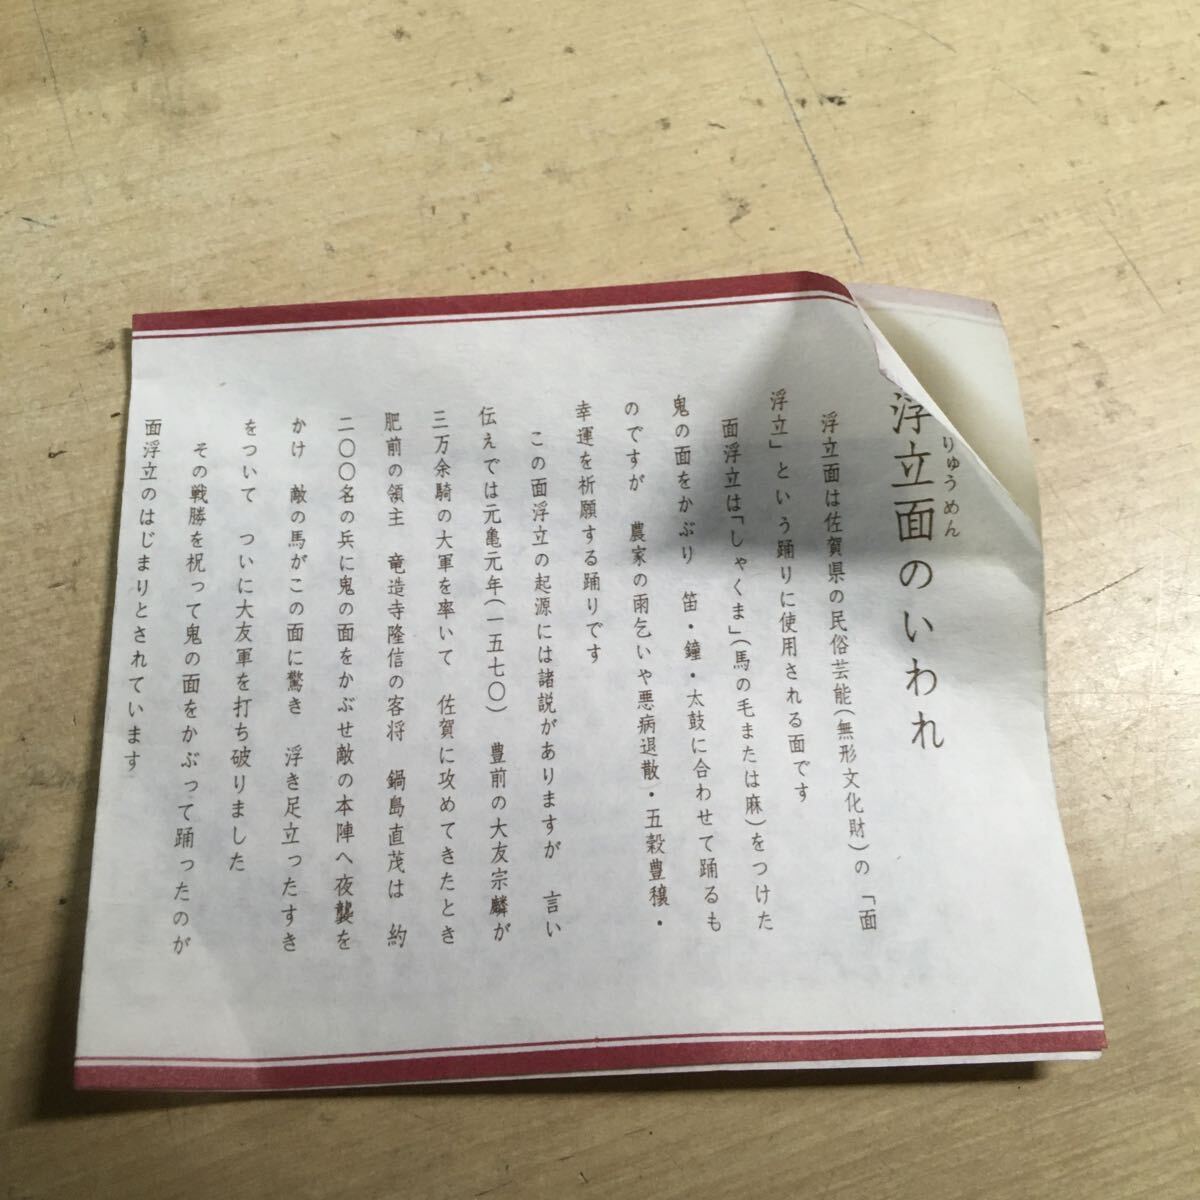 浮立面のいわれ
りゅうめん
浮立面は佐賀県の民俗芸能(無形文化財)の「面
浮立」という踊りに使用される面です
面浮立は「しゃくま」(馬の毛または麻)をつけた
鬼の面をかぶり 笛・鐘・太鼓に合わせて踊るも
のですが 農家の雨乞いや悪病退散・五穀豊穣・
幸運を祈願する踊りです
この面浮立の起源には諸説がありますが 言い
伝えでは元亀元年(一五七〇) 豊前の大友宗麟が
三万余騎の大軍を率いて 佐賀に攻めてきたとき
肥前の領主 竜造寺隆信の客将 鍋島直茂は 約
二〇〇名の兵に鬼の面をかぶせ敵の本陣へ夜襲を
かけ 敵の馬がこの面に驚き 浮き足立ったすき
をついて ついに大友軍を打ち破りました
その戦勝を祝って鬼の面をかぶって踊ったのが
面浮立のはじまりとされています